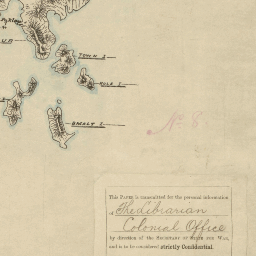 TOWN I
HOLE I
BASALT I
No 8.
This Paper is transmitted for the personal information
of The Librarian
Colonial Office
by direction of the Secretary of State for War,
and is to be considered strictly Confidential.